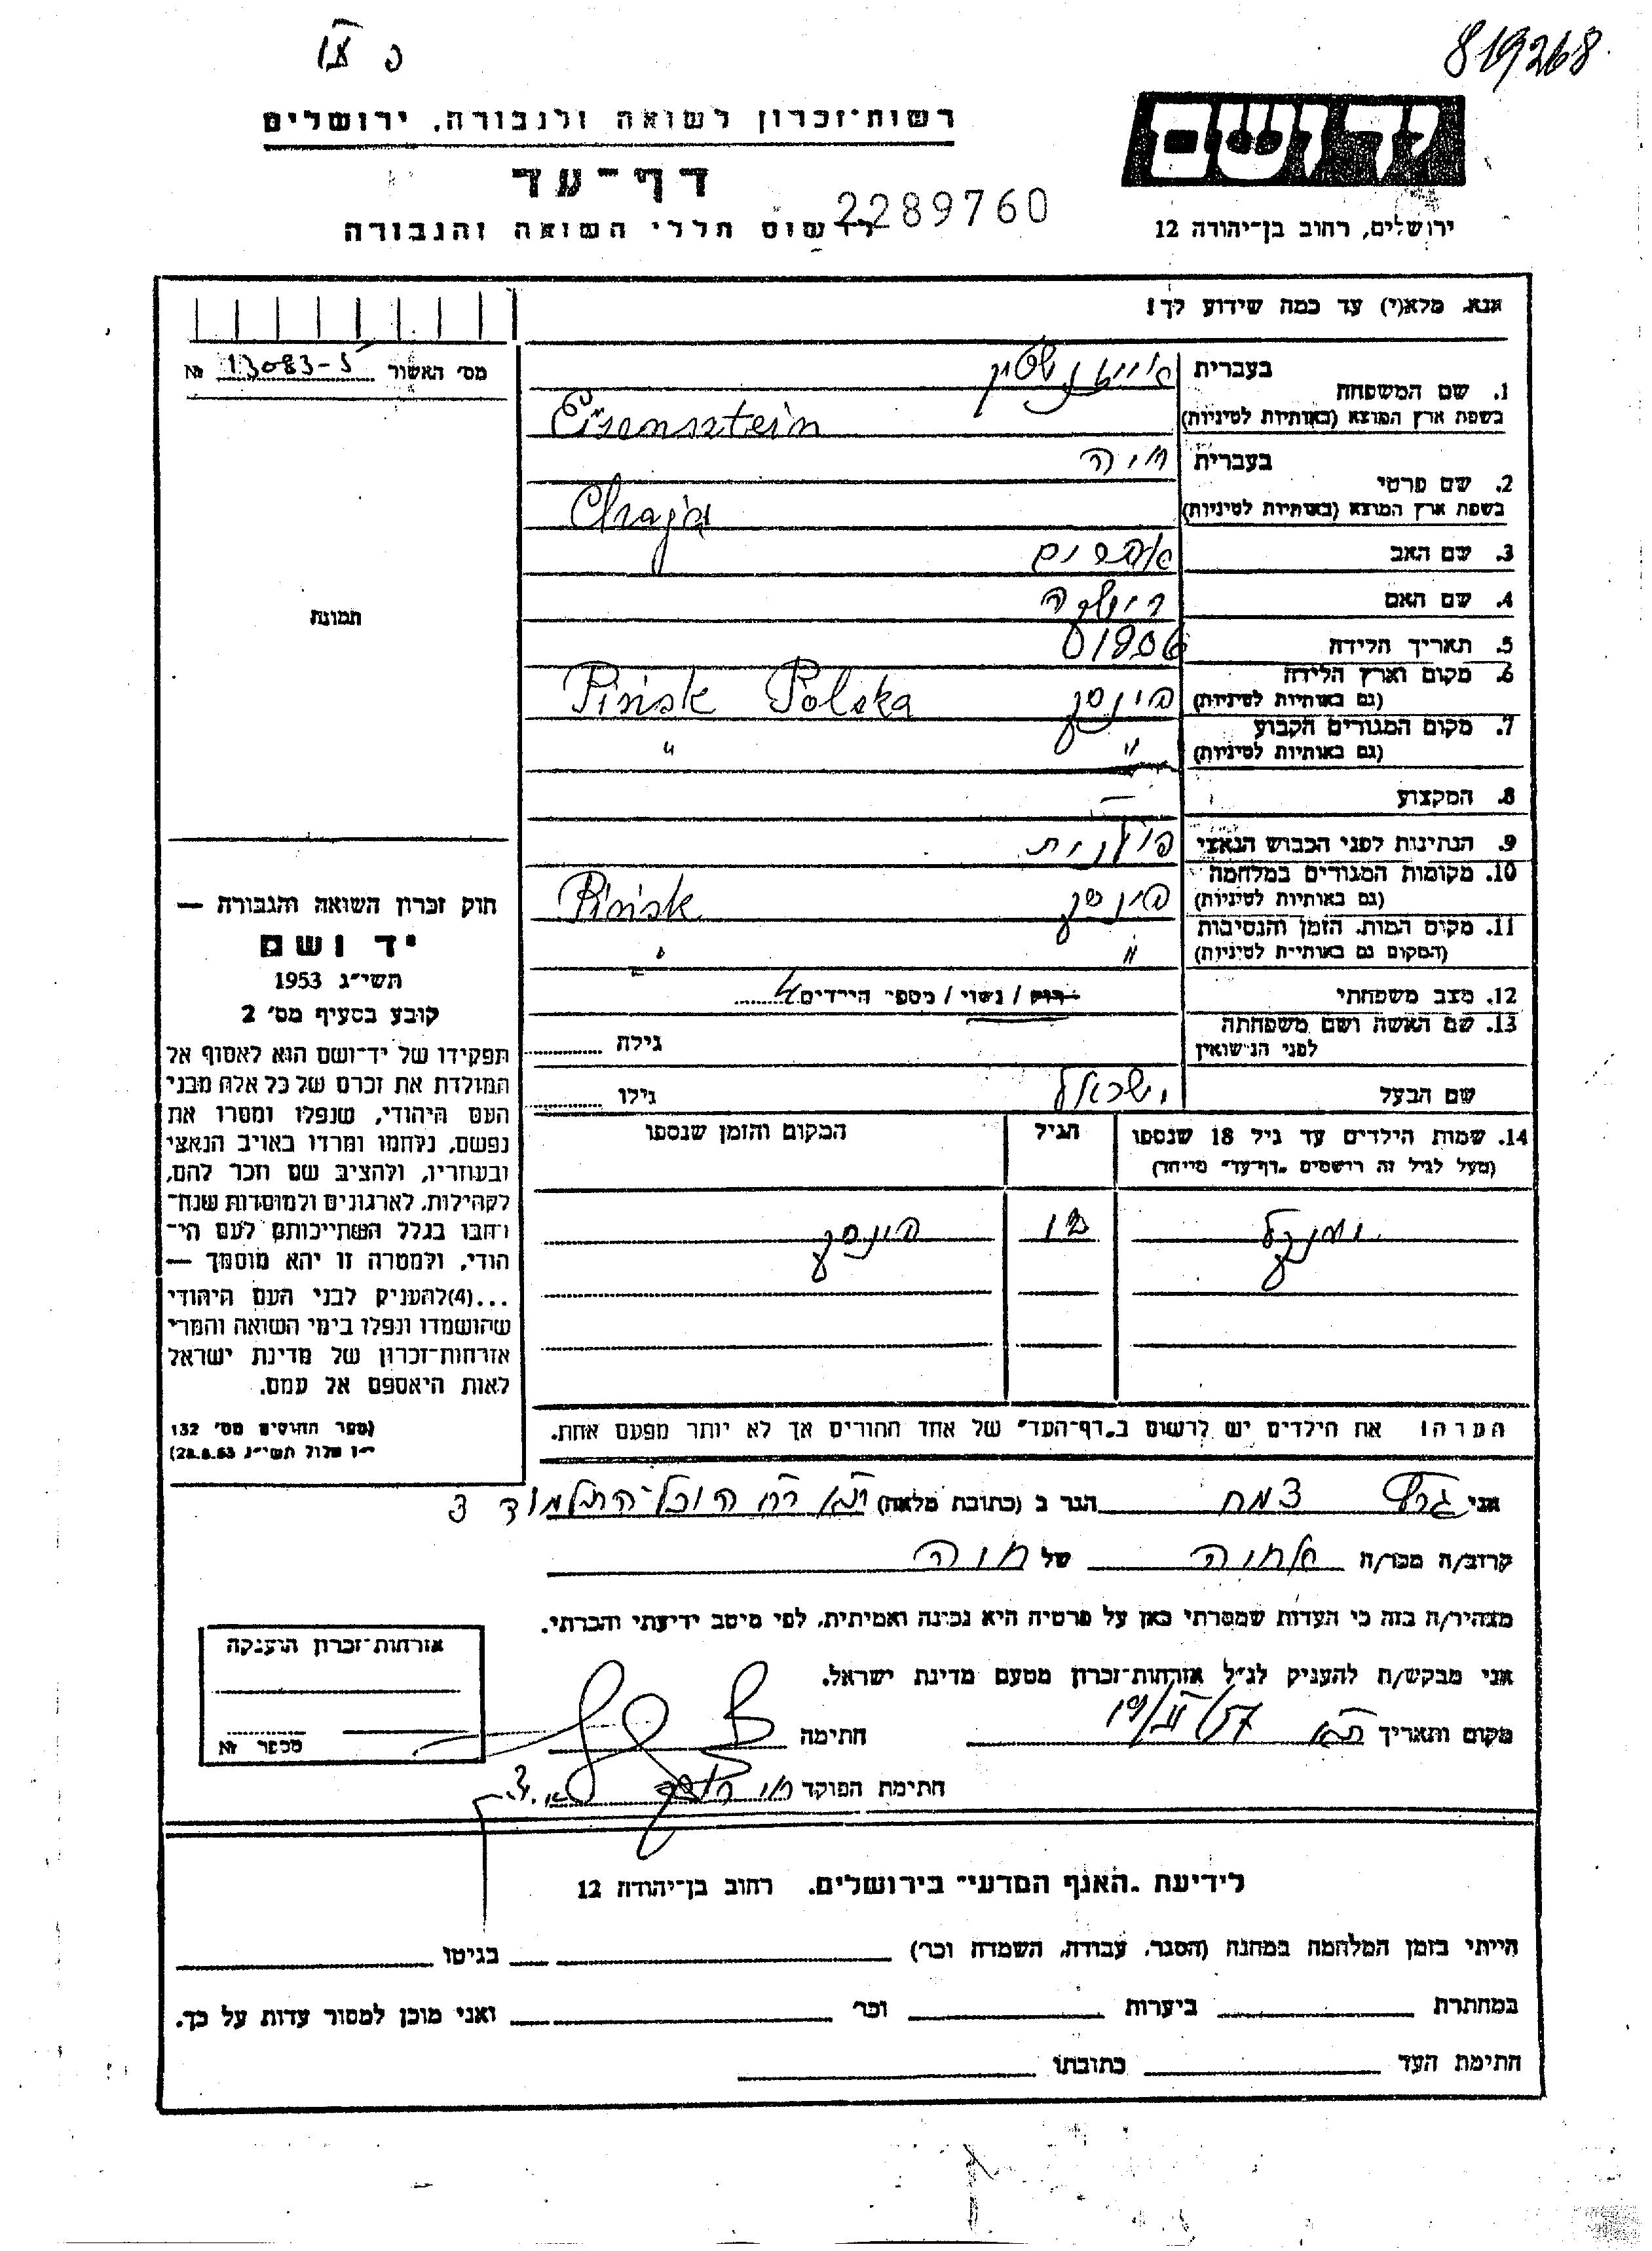 819268
רשות־זכרון לשואה ולגבורה, ירושלים
דף־עד
2289760
לרשום חללי השואה והגבורה
יד ושם
ירושלים, רחוב בן־יהודה 12
נא, מלא(י) עד כמה שידוע לך!
מס׳ האשור 13083-5 №
1. שם המשפחה
בעברית אייזנשטיין
בשפת ארץ המוצא (באותיות לטיניות) Eisensztein
2. שם פרטי
בעברית חיה
בשפת ארץ המוצא (באותיות לטיניות) Chaja
3. שם האב אפרים
4. שם האם
5. תאריך הלידה 1906
6. מקום וארץ הלידה
(גם באותיות לטיניות) פינסק Pińsk Polska
7. מקום המגורים הקבוע
(גם באותיות לטיניות) " "
8. המקצוע –
9. הנתינות לפני הכבוש הנאצי פולנית
10. מקומות המגורים במלחמה
(גם באותיות לטיניות) פינסק Pińsk
11. מקום המות, הזמן והנסיבות
(המקום גם באותיות לטיניות) " "
12. מצב משפחתי רווק / נשוי / מספר הילדים 4
13. שם האשה ושם משפחתה
לפני הנישואין גילה
שם הבעל ישראל גילו
14. שמות הילדים עד גיל 18 שנספו
(מעל לגיל זה רושמים "דף־עד" מיוחד)
הגיל
המקום והזמן שנספו
יענקל 12 פינסק
הערה: את הילדים יש לרשום ב"דף־העד" של אחד ההורים אך לא יותר מפעם אחת.
תמונה
חוק זכרון השואה והגבורה —
יד ושם
תשי״ג 1953
קובע בסעיף מס׳ 2
תפקידו של יד־ושם הוא לאסוף אל
המולדת את זכרם של כל אלה מבני
העם היהודי, שנפלו ומסרו את
נפשם, נלחמו ומרדו באויב הנאצי
ובעוזריו, ולהציב שם וזכר להם,
לקהילות, לארגונים ולמוסדות שנח־
רבו בגלל השתייכותם לעם הי־
הודי, ולמטרה זו יהא מוסמך —
...(4) להעניק לבני העם היהודי
שהושמדו ונפלו בימי השואה והמרי
אזרחות־זכרון של מדינת ישראל
לאות היאספם אל עמם.
(ספר החוקים מס׳ 132
י״ז אלול תשי״ג 28.8.53)
אני צמח הגר ב (כתובת מלאה) ת״א רח היכל־התלמוד 3
קרוב/ה מכר/ה אחיה של חיה
מצהיר/ה בזה כי העדות שמסרתי כאן על פרטיה היא נכונה ואמיתית, לפי מיטב ידיעתי והכרתי.
אני מבקש/ת להעניק לנ״ל אזרחות־זכרון מטעם מדינת ישראל.
מקום ותאריך ת״א חתימה
חתימת הפוקד
אזרחות־זכרון הוענקה
מספר №
לידיעת "האגף המדעי" בירושלים, רחוב בן־יהודה 12
הייתי בזמן המלחמה במחנה (הסגר, עבודה, השמדה וכו׳) בגיטו
במחתרת ביערות וכו׳ ואני מוכן למסור עדות על כך.
חתימת העד כתובתו